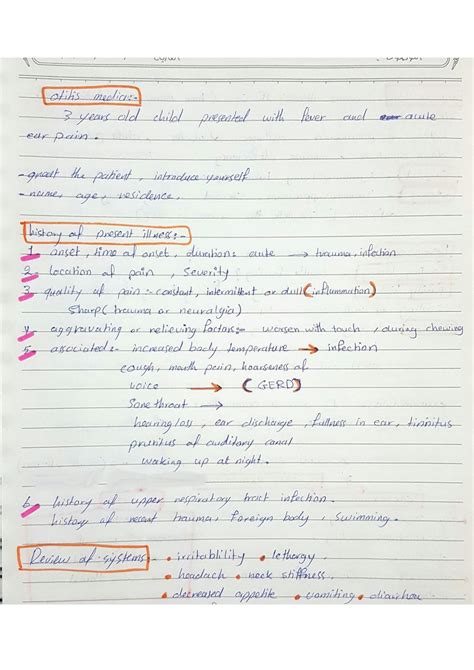 otitis media:-
3 years old child presented with fever and acute
ear pain.
-greet the patient, introduce yourself
-name, age, residence,
history of present illness:-
1. onset, time of onset, duration: acute → trauma, infection
2. location of pain, severity
3. quality of pain :- constant, intermittent or dull (inflammation)
sharp (trauma or neuralgia)
4. aggravating or relieving factors:- worsen with touch, during chewing
5. associated:- increased body temperature → infection
cough, mouth pain, hoarseness of
voice → (GERD)
Sore throat →
hearing loss, ear discharge, fullness in ear, tinnitus
pruritus of auditory canal
waking up at night.
6. history of upper respiratory tract infection.
history of recent trauma, foreign body, swimming.
Review of systems:- • irritability • lethergy,
• headach • neck stiffness,
• decreased appetite • vomiting • diarrhea